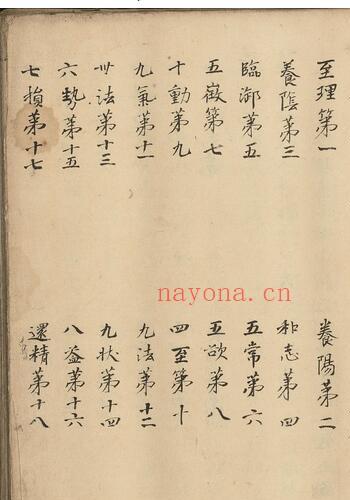 至理第一
養陽第二
養陰第三
和志第四
臨御第五
五常第六
五徴第七
五欲第八
十動第九
四至第十
九氣第十一
九法第十二
卅法第十三
九状第十四
六勢第十五
八益第十六
七損第十七
還精第十八
nayona.cn